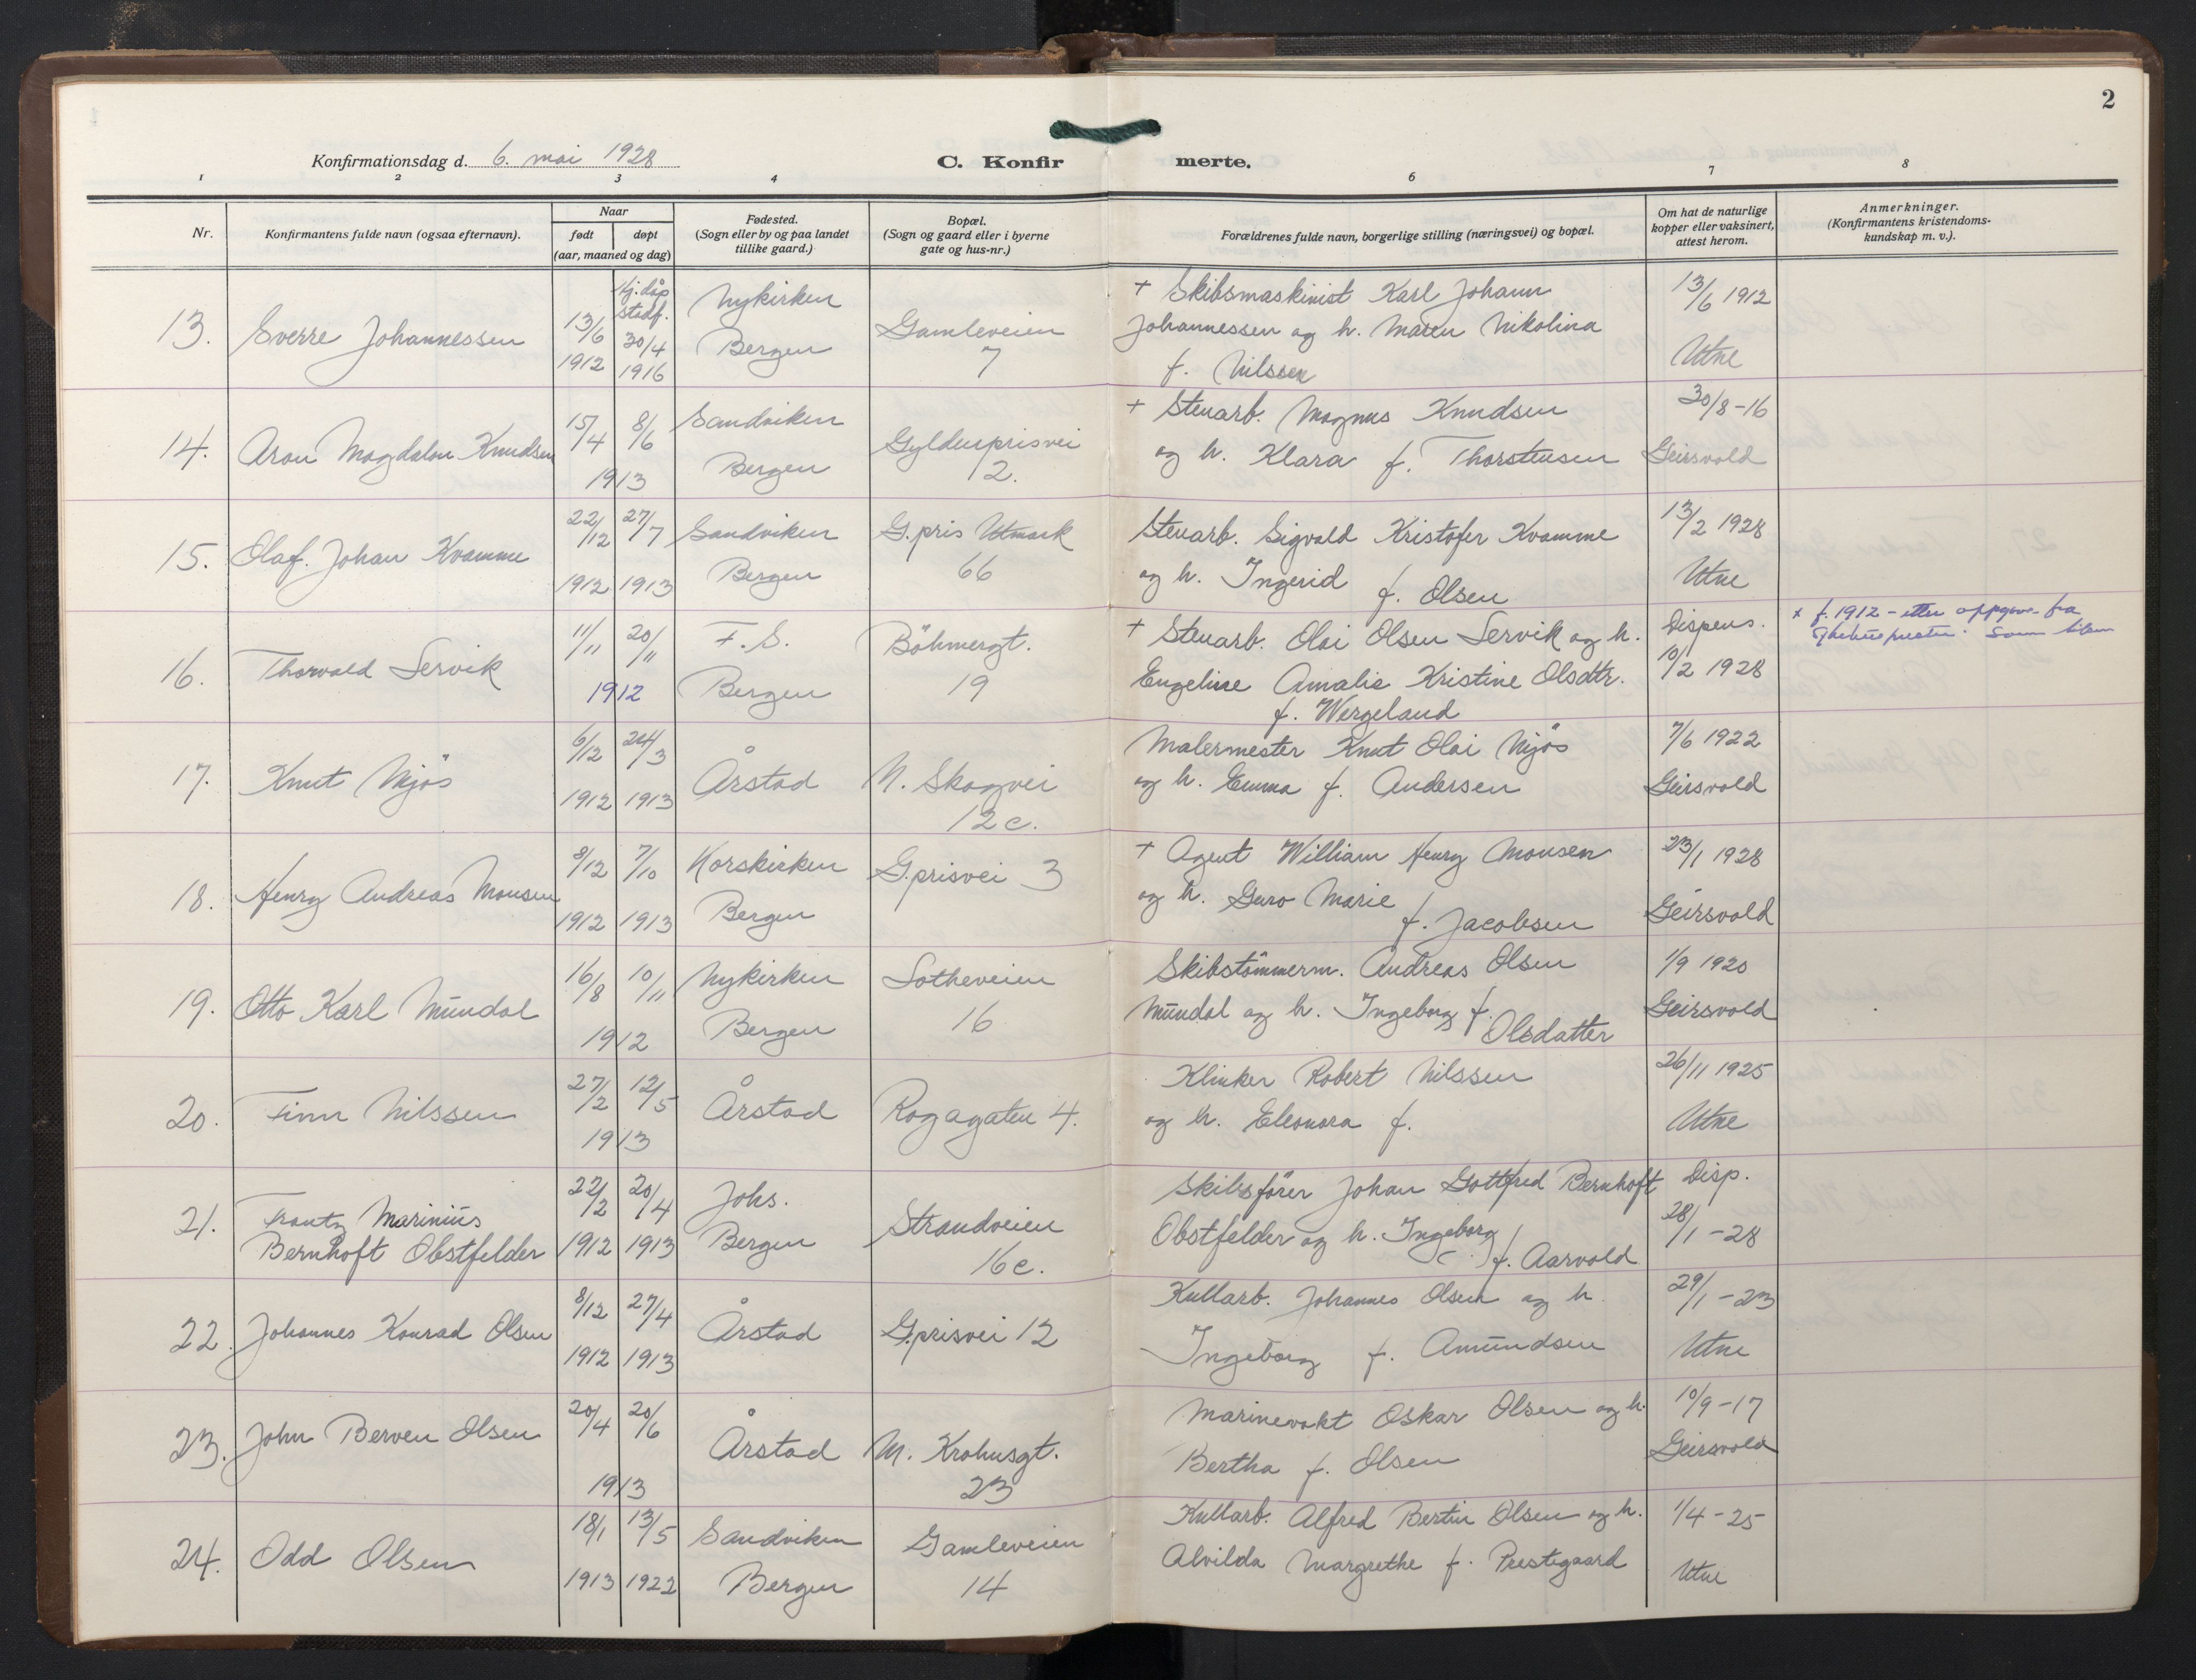 2
Konfirmationsdag d. 6. mai 1928
C. Konfirmerte.
1 2 3 4 5 6 7 8
Nr.
Konfirmantens fulde navn (ogsaa efternavn).
Naar
født døpt
(aar, maaned og dag)
Fødested.
(Sogn eller by og paa landet
tillike gaard.)
Bopæl.
(Sogn og gaard eller i byerne
gate og hus-nr.)
Forældrenes fulde navn, borgerlige stilling (næringsvei) og bopæl.
Om hat de naturlige
kopper eller vaksinert,
attest herom.
Anmerkninger.
(Konfirmantens kristendoms-
kundskap m. v.).
13. Sverre Johannessen
13/6 1912
Hj.dåp
stadf.
30/4
1916
Nykirken
Bergen
Gamleveien
7
+ Skibsmaskinist Karl Johann
Johannessen og h. Maren Nikolina
f. Nilssen
13/6 1912
Utne
14. Aron Magdalon Knudsen
15/4 8/6
1913
Sandviken
Bergen
Gyldenprisvei
12.
+ Stenarb. Magnus Knudsen
og h. Klara f. Thorstensen
30/8-16
Geirsvold
15. Olaf Johan Kvamme
22/12 27/7
1912 1913
Sandviken
Bergen
G.pris Utmark
66
Stenarb. Sigvald Kristofer Kvamme
og h. Ingerid f. Olsen
13/2 1928
Utne
16. Thorvald Servik
11/11 20/11
1912
F. S.
Bergen
Böhmergt.
19
+ Stenarb. Olai Olsen Servik og h.
Engeline Amalie Kristine Olsdtr.
f. Wergeland
Dispens.
10/2 1928
x f. 1912 - etter oppgave fra
17. Knut Mjös
6/12 24/3
1912 1913
Årstad
N. Skogvei
12c.
Malermester Knut Olai Mjös
og h. Emma f. Andersen
7/6 1922
Geirsvold
18. Henry Andreas Monsen
8/12 7/10
1912 1913
Korskirken
Bergen
G.prisvei 3
+ Agent William Henry Monsen
og h. Guro Marie
f. Jacobsen
23/1 1928
Geirsvold
19. Otto Karl Mundal
16/8 10/11
1912
Nykirken
Bergen
Lotheveien
16
Skibstömmerm. Andreas Olsen
Mundal og h. Ingeborg f.
Olsdatter
1/9 1920
Geirsvold
20. Finn Nilssen
27/2 12/5
1913
Årstad
Rogagaten 4.
Klinker Robert Nilssen
og h. Eleonora f.
26/11 1925
Utne
21. Frantz Marinius
Bernhoft Obstfelder
22/2 20/4
1912 1913
Johs.
Bergen
Strandveien
16c.
Skibsfører Johan Gottfred Bernhoft
Obstfelder og h. Ingeborg
f. Aarvold
Disp.
28/1 - 28
22. Johannes Konrad Olsen
8/12 27/4
1912 1913
Årstad
G.prisvei 12
Kullarb. Johannes Olsen og h.
Ingeborg f. Amundsen
29/1 - 23
Utne
23. John Berven Olsen
20/4 20/6
1913
Årstad
M. Krohnsgt.
23
Marinevakt Oskar Olsen og h.
Bertha f. Olsen
10/9 - 17
Geirsvold
24. Odd Olsen
18/1 13/5
1913 1922
Sandviken
Bergen
Gamleveien
14
Kullarb. Alfred Bertin Olsen og h.
Alvilda Margrethe f. Prestegaard
1/4 - 25
Utne